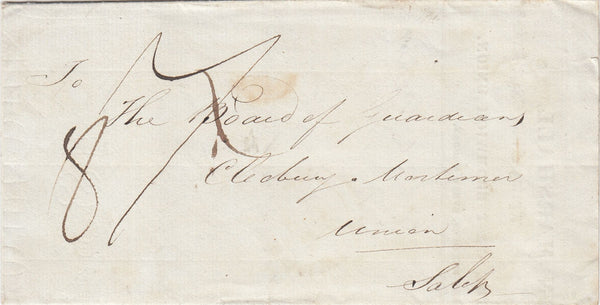 To
The Board of Guardians
Cleobury Mortimer
Union
Salop
8